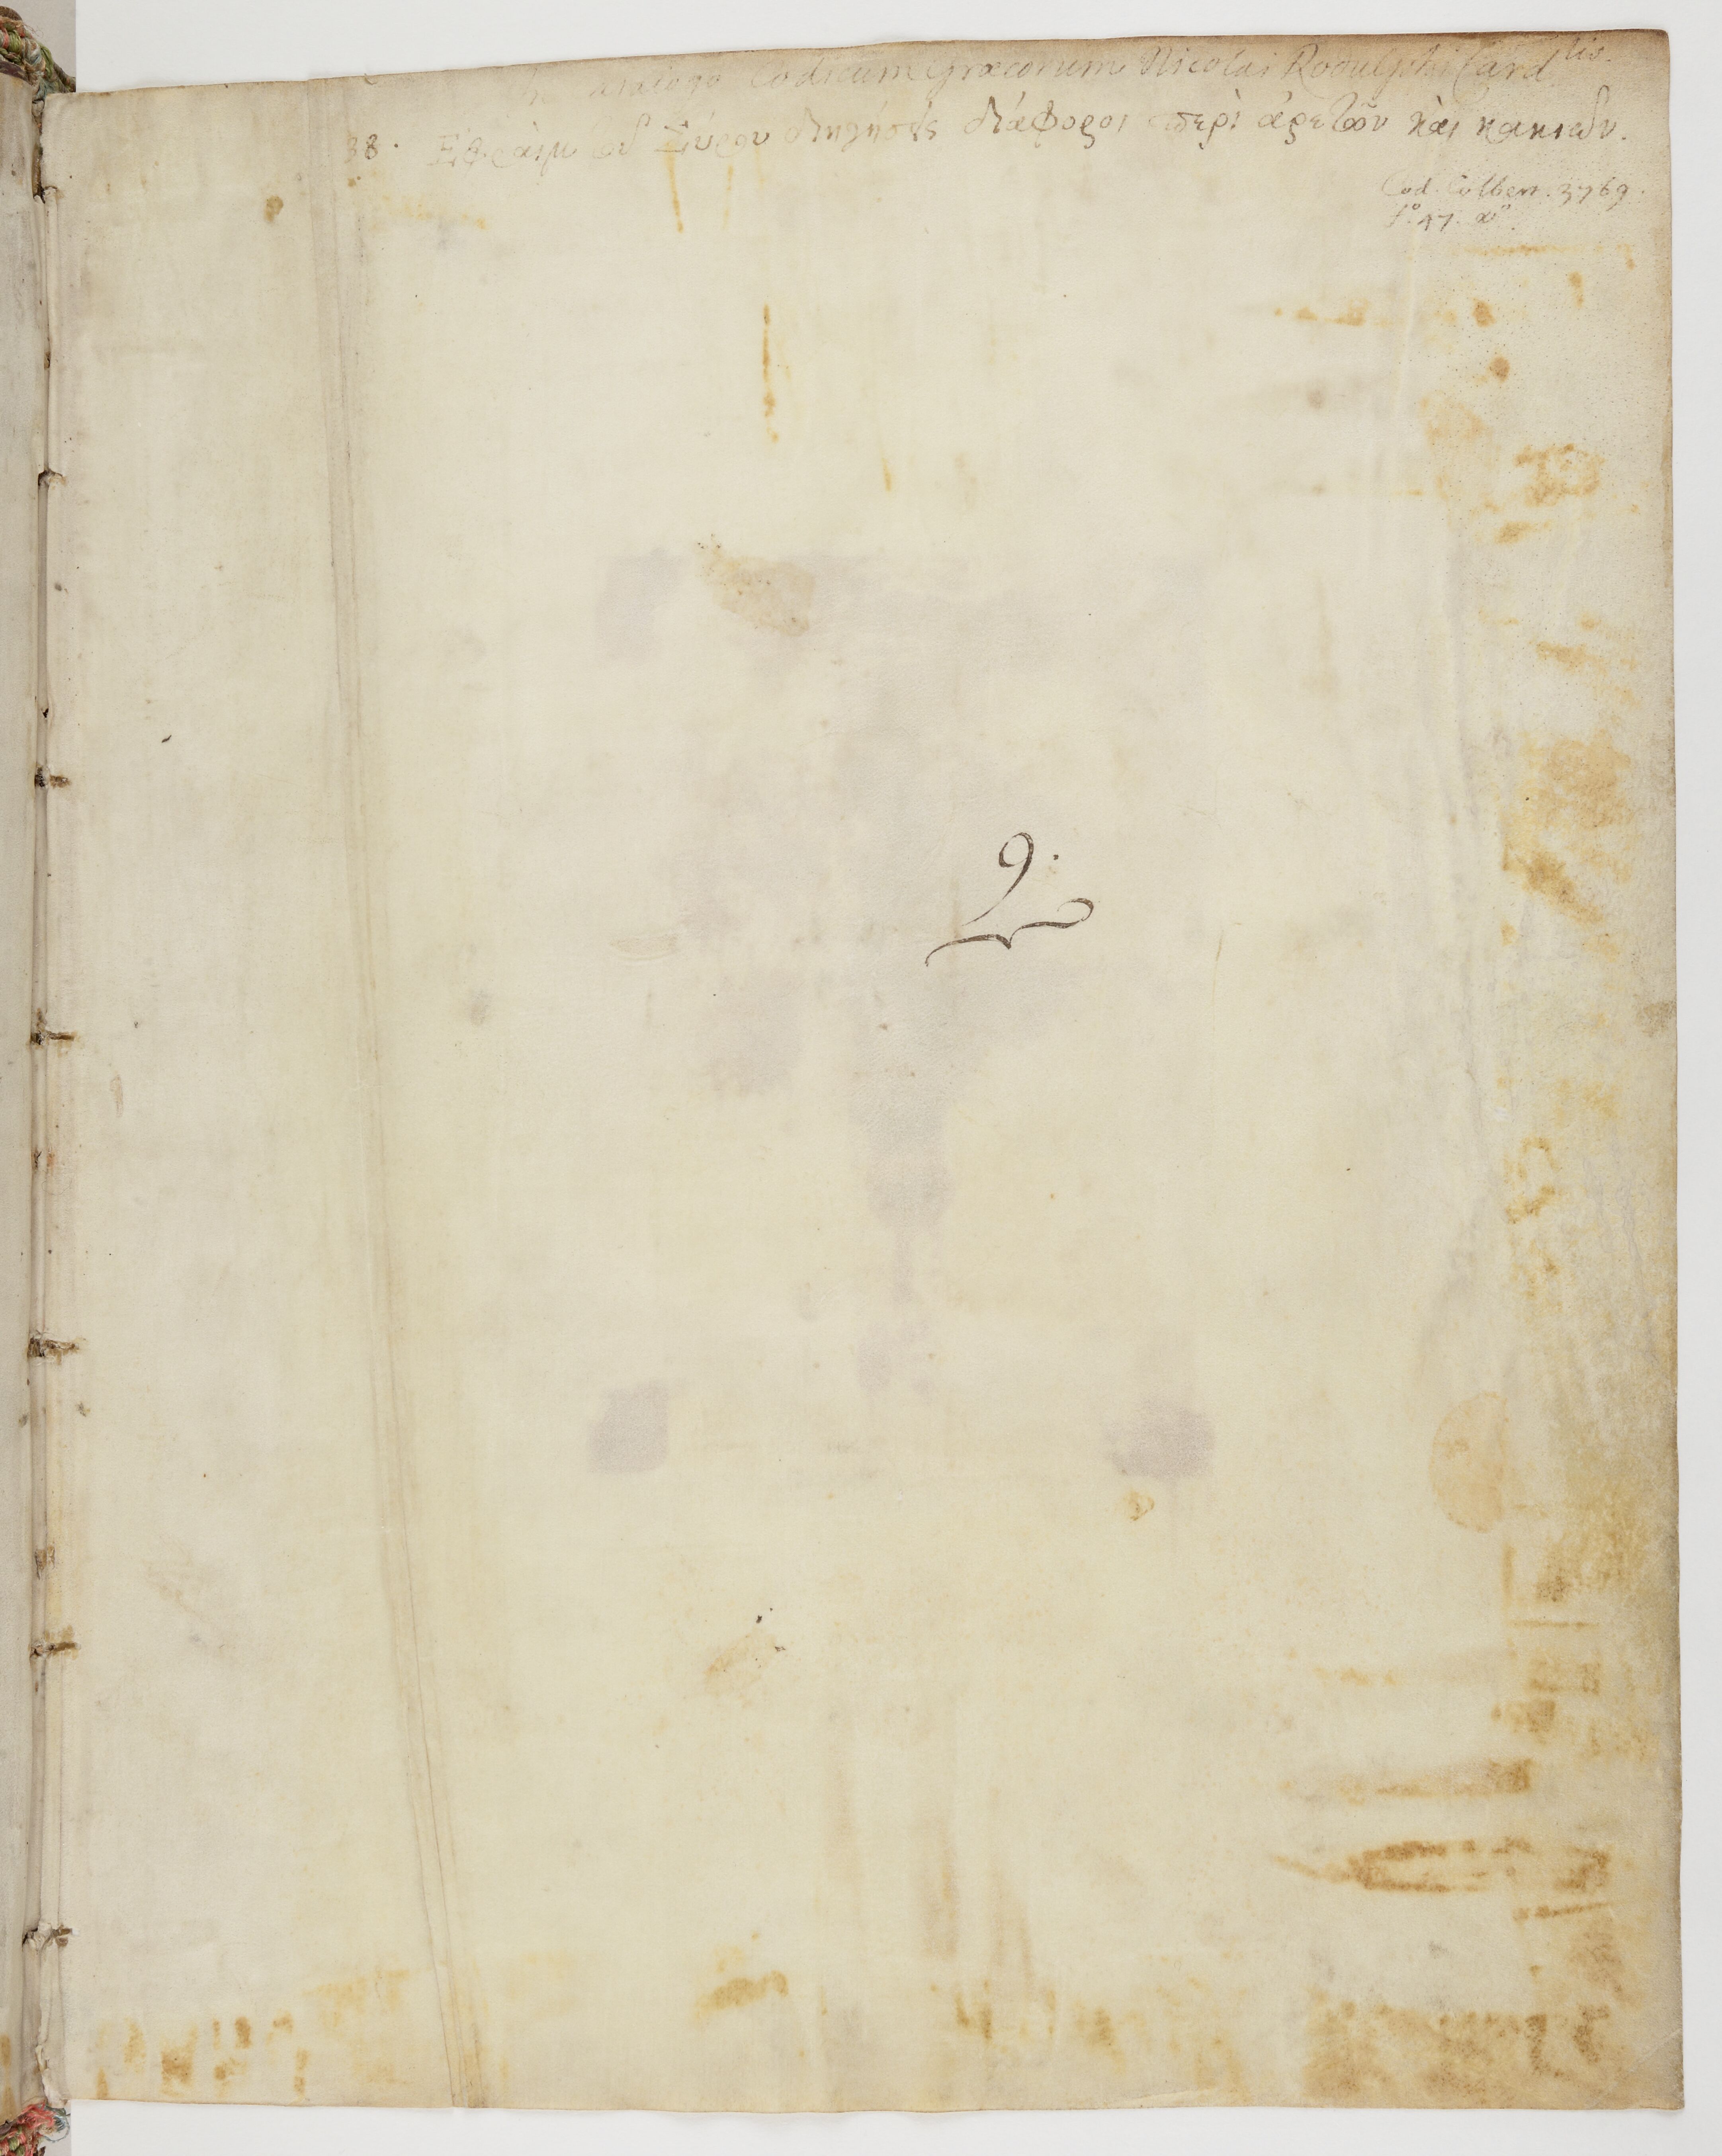 In catalogo Codicum Græcorum Nicolai Rodulphi Card^lis.
38. Ἐφραὶμ τοῦ Σύρου διηγήσεις διάφοροι περὶ ἀρετῶν καὶ κακιῶν.
Cod. Colbert. 3769.
f.° 47. v°.
9.